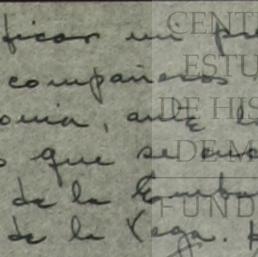 ficar un pre
compañeros
onia, ante l
o que se en
de la Emba
de la Vega.
CENT
ESTU
DE HIS
DE M
FUND